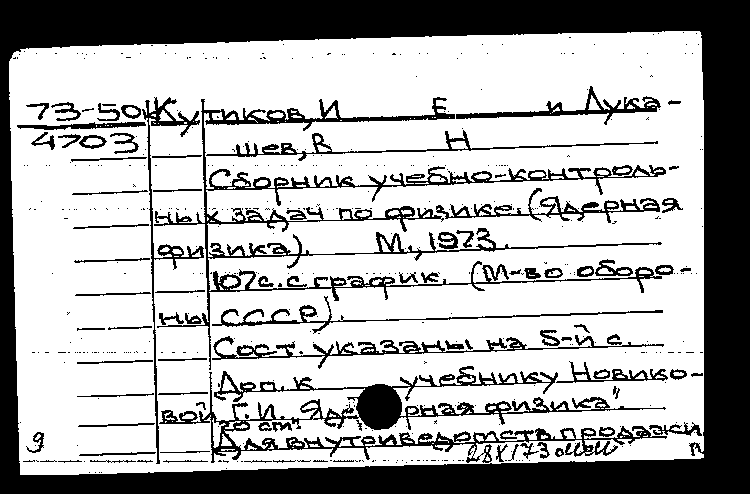 73-50к Кутиков, И Е и Лука-
4703 шев, В Н
Сборник учебно-контроль-
ных задач по физике. (Ядерная
физика). М., 1973.
107 с. с график. (М-во оборо-
ны СССР).
Сост. указаны на 5-й с.
Доп. к учебнику Новико-
вой Г. И. „Ядерная физика".
Для внутриведомств. продажи
28 X 173
9 п